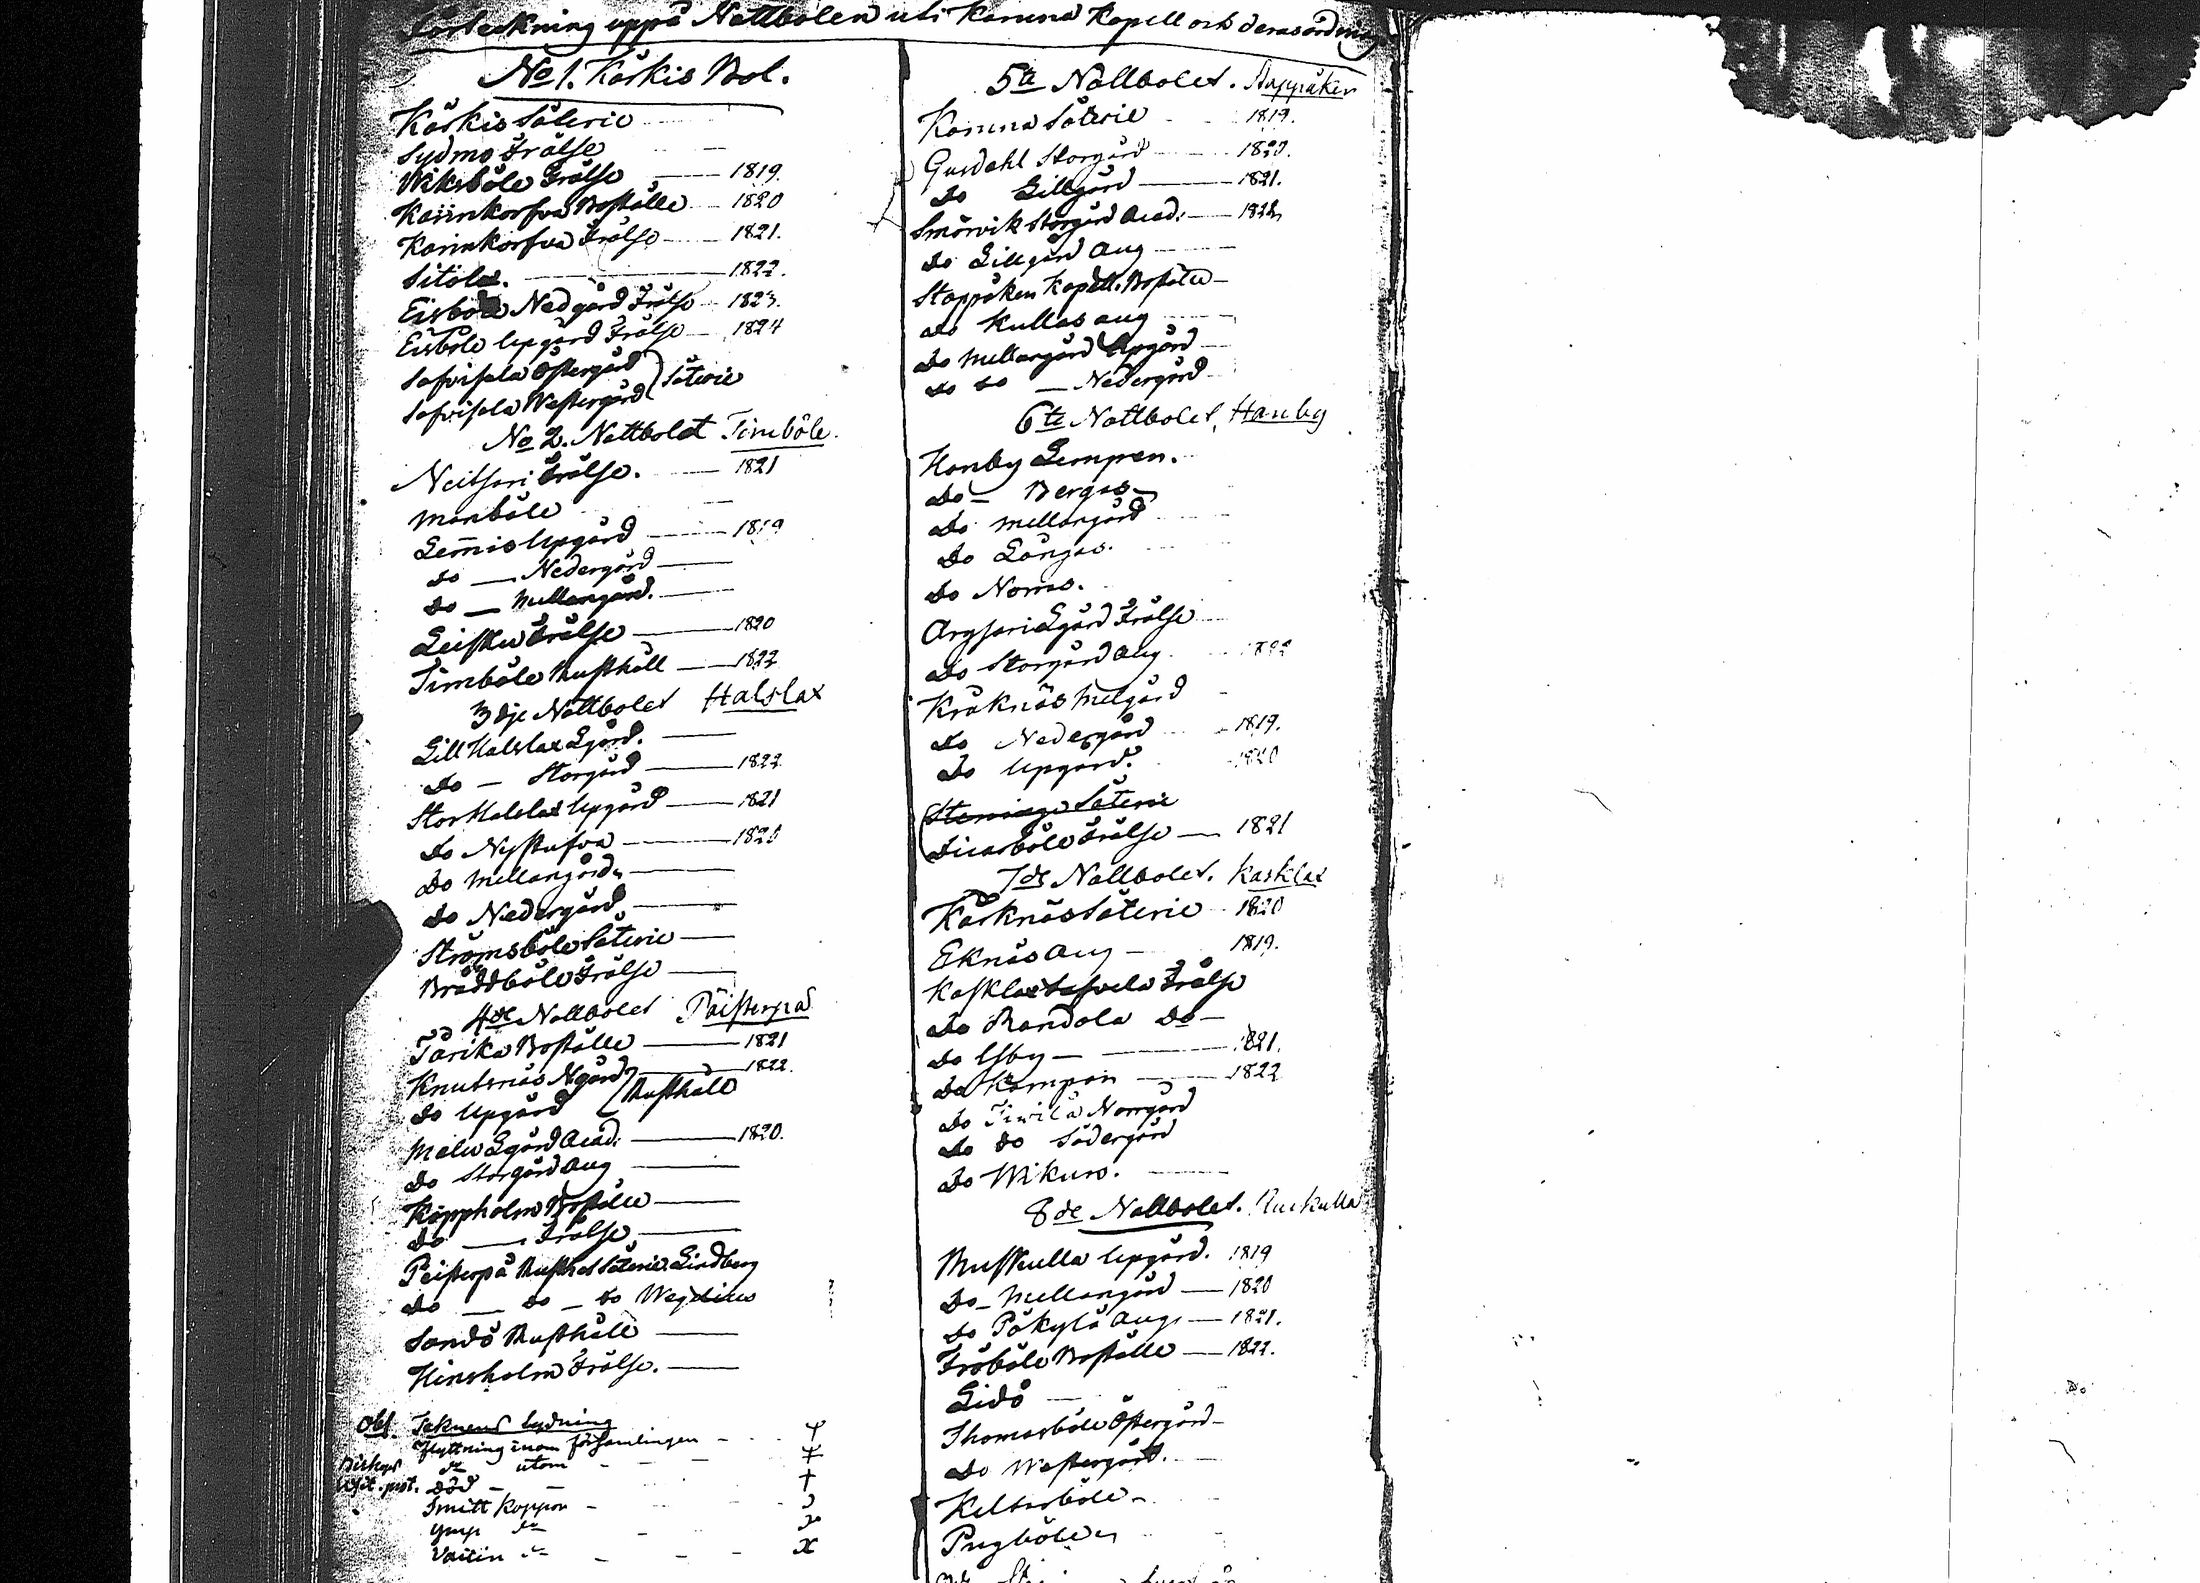 Förteckning uppå Nattbolen uti Karuna Kapell och deras ordning
No 1. Kärkis Bol.
Kärkis Säterie
Sydmo Frälse
Wiksböle Frälse 1819.
Karinkorfva Boställe 1820
Karinkorfva Frälse 1821.
Sitola. 1822.
Eisböle Nedgård Frälse 1823.
Eisböle Upgård Frälse 1824
Safvisala Östergård
Safvisala Westergård Säterie
No 2. Nattbolet Timböle.
Neitsari Frälse. 1821
Manböle
Lemmis Upgård 1819
do Nedergård
do Mellangård.
Leistu Frälse 1820
Timböle Rusthåll 1822
3dje Nattbolet Halslax
Lill Halslax Lgård.
do Storgård 1822
Stor Halslax Upgård 1821
do Nystufva 1820
do Mellangård
do Nedergård
Strömsböle Säterie
Bräddböle Frälse
4de Nattbolet Päisterpä
Tärika Boställe 1821
Knutsnäs Ngård 1822.
do Upgård Rusthåll
Malu Lgård Acad: 1820.
do Storgård Aug
Käppholm Boställe
do Frälse
Peisterpä Rusth. Säterie Lindberg
do do do Wegelius
Sandö Rusthåll
Hinsholm Frälse.
Obs. Teknens lydning
Flyttning inom församlingen
do utom
Biskops
Visit. prot. död †
Smitt Koppor
Ymp do
Vaccin do
5te Nattbolet. Stappäken
Karuna Säterie 1819.
Gusdahl Storgård 1820.
do Lillgård 1821.
Smörvik Storgård Acad: 1822
do Lillgård Aug
Stappäken Kapell. Boställe
do Kullas Aug
do Mellangård Upgård
do do Nedergård
6te Nattbolet, Hanby
Hanby Lempen.
do Bergas
do Mellangård
do Långas.
do Norrs.
Argsari Lgård Frälse
do Storgård Aug. 1822
Kräknäs Melgård
do Nedergård 1819.
do Upgård. 1820
Steninge Säterie
Dicarböle Frälse 1821
7de Nattbolet. Kasklax
Karknäs Säterie 1820
Eknäs Aug 1819.
Kasklax Frälse
do Randala do
do Usby 1821.
do Kampan 1822
do Norrgård
do do Södergård
do Wikurs.
8de Nattbolet. Ruskulla
Ruskulla Upgård. 1819
do Mellangård 1820
do Päkylä Aug. 1821.
Fröböle Boställe 1822.
Lidö
Thomasböle Östergård
do Westergård.
Keltarböle
Pugböle